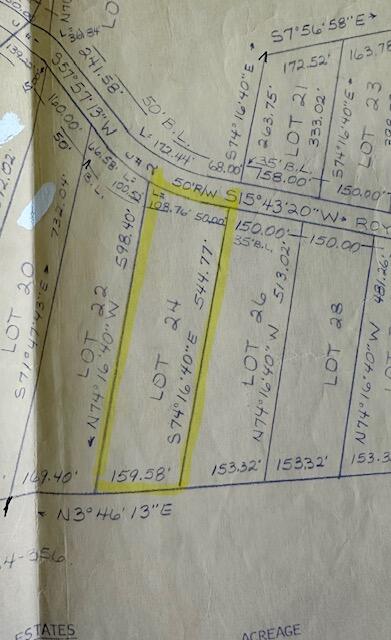 S7°56'58"E
36.84
241.58'
50' B.L.
172.52'
163.78
S57°57'13"W
160.00'
S74°16'40"E
263.75'
LOT 21
333.02'
S74°16'40"E
LOT 23
L= 172.44'
68.00'
35' B.L.
158.00'
150.00'
50' R/W
S15°43'20"W
66.58'
B.L.
108.76'
50.00'
150.00'
150.00'
35' B.L.
LOT 20
S71°47'43"E
732.04'
LOT 22
N74°16'40"W
598.40'
LOT 24
S74°16'40"E
544.77'
LOT 26
N74°16'40"W
513.02'
LOT 28
N74°16'40"W
481.26'
169.40'
159.58'
153.32'
153.32'
153.3
N3°46'13"E
4-356
ESTATES
ACREAGE